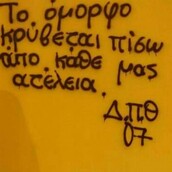 Το όμορφο
κρύβεται πίσω
από κάθε μας
ατέλεια.
Δ.Π.Θ
07